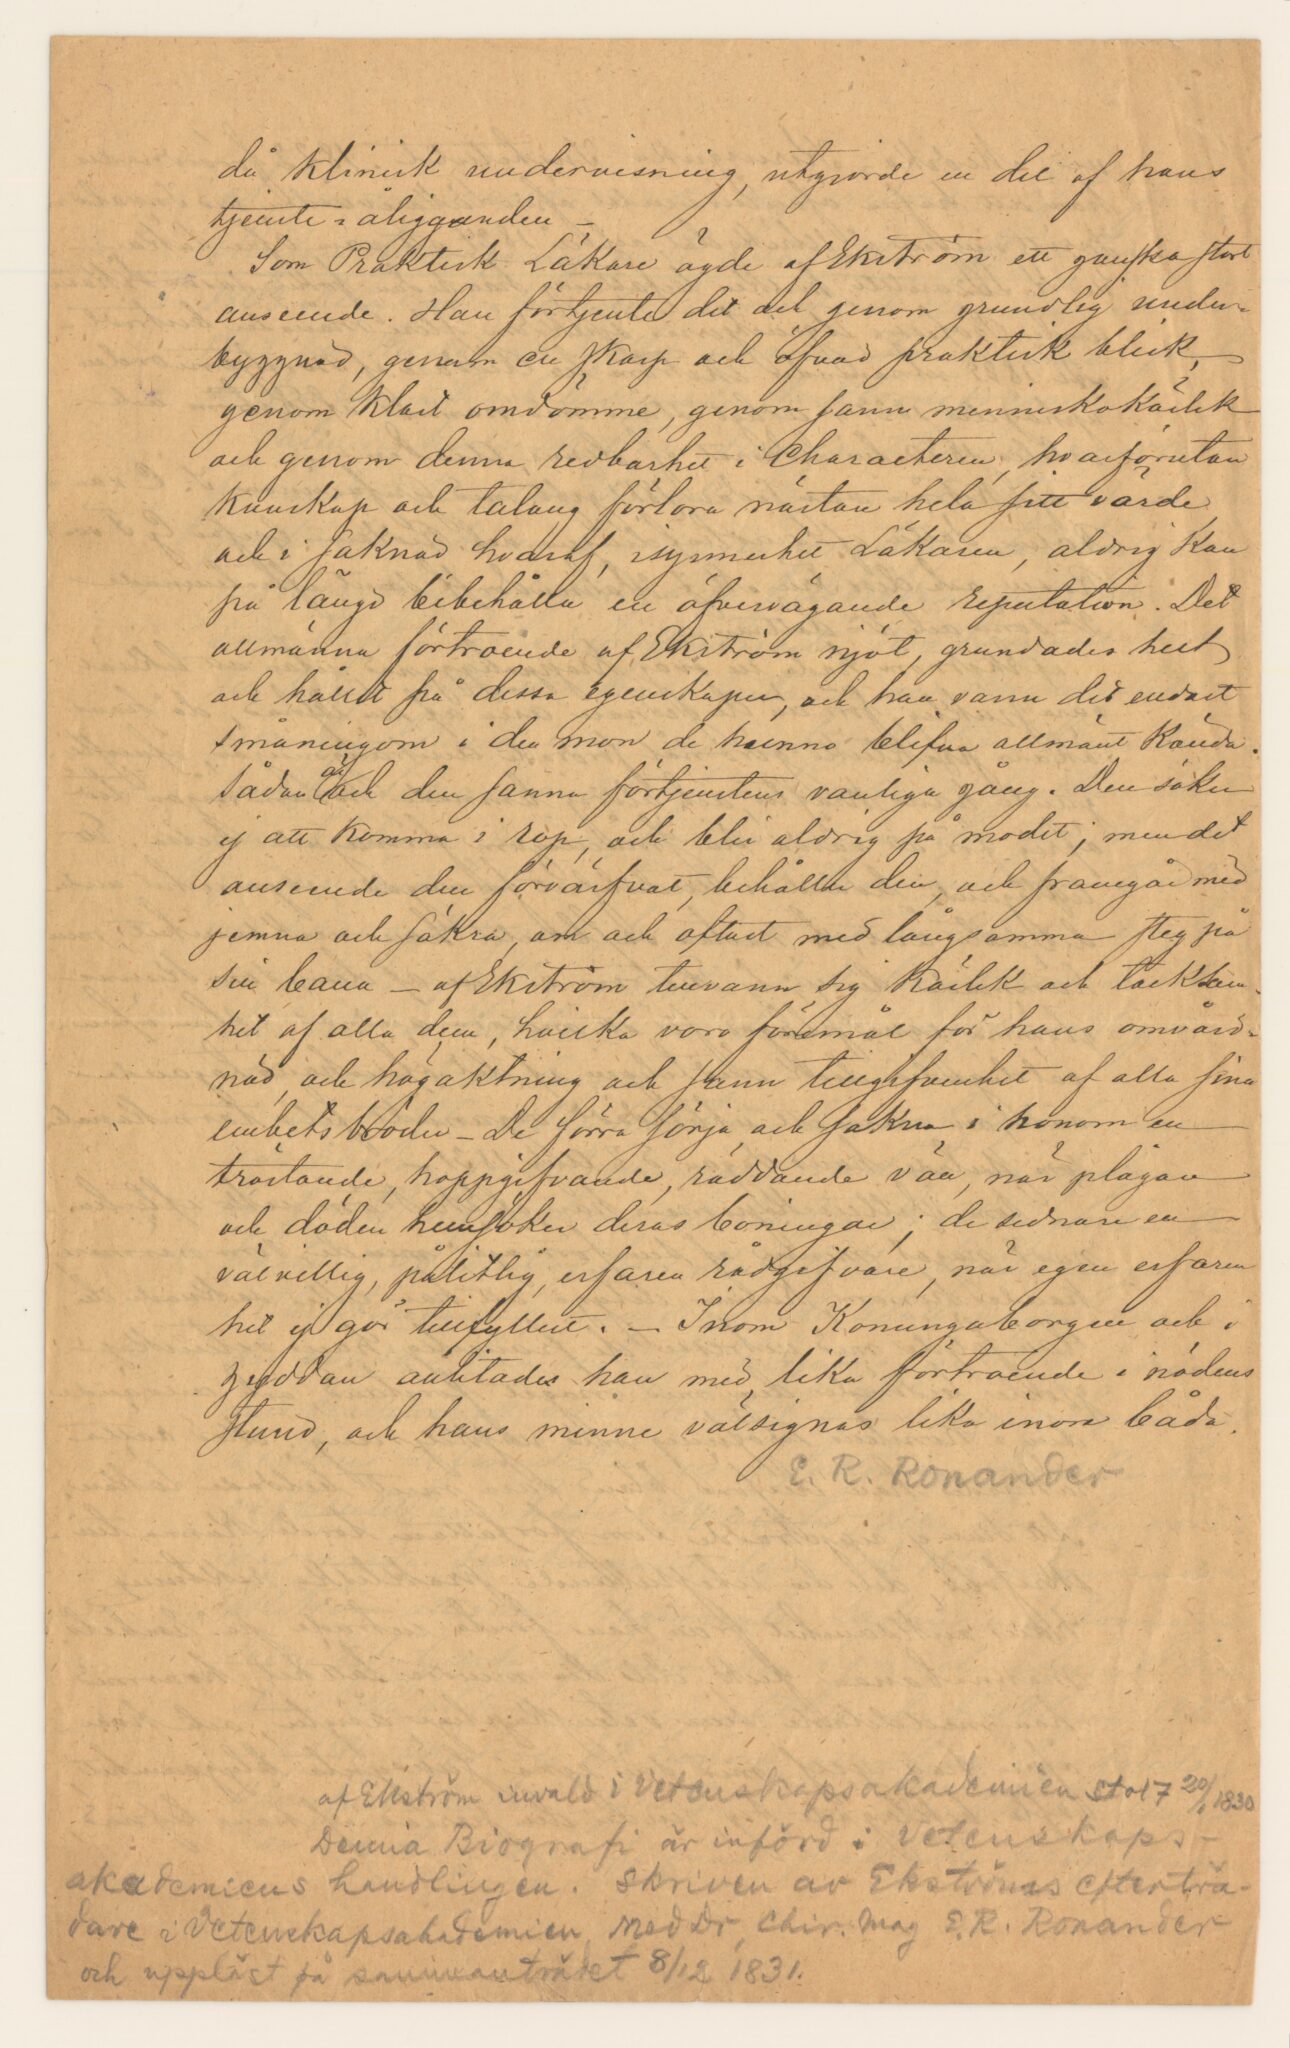 då klinisk undervisning, utgjorde en del af hans
tjenste-åligganden –
Som Praktisk Läkare ägde af Ekström ett ganska stort
anseende. Han förtjente det ock genom grundlig under-
byggnad, genom en skarp och öfvad praktisk blick,
genom klart omdömme, genom sann menniskokärlek
och genom denna redbarhet i Characteren, hvarförutan
kunskap och talang förlora nästan hela sitt värde
och i saknad hvaraf, isynnerhet Läkaren, aldrig kan
på längd bibehålla en öfvervägande reputation. Det
allmänna förtroende af Ekström njöt, grundades helt
och hållet på dessa egenskaper, och han vann det endast
småningom i den mon de hunno blifva allmänt kända.
Sådan är ock den sanna förtjenstens vanliga gång. Den söker
ej att komma i rop, och blir aldrig på modet; men det
anseende den förvärfvat, behåller den, och framgår med
jemna och säkra, om och oftast med långsamma steg på
sin bana – af Ekström tillvann sig kärlek och tacksam-
het af alla dem, hvilka voro föremål för hans omvård-
nad, och högaktning och sann tillgifvenhet af alla sina
embetsbröder – De förra sörja och sakna i honom en
tröstande, hoppgifvande, räddande vän, när plågan
och döden hemsöker deras boningar; de sednare en
välvillig, pålitlig, erfaren rådgifvare, när egen erfaren
het ej gör tillfyllest. – Inom Konungaborgen och i
hyddan anlitades han med lika förtroende i nödens
stund, och hans minne välsignas lika inom båda.
E. R. Ronander
af Ekström invald i Vetenskapsakademien stol 7 20/1 1830
Denna Biografi är införd i Vetenskaps-
akademiens handlingen. Skriven av Ekströms efterträ-
dare i Vetenskapsakademien, Med Dr, Chir. Mag E. R. Ronander
och uppläst på sammanträdet 8/12 1831.